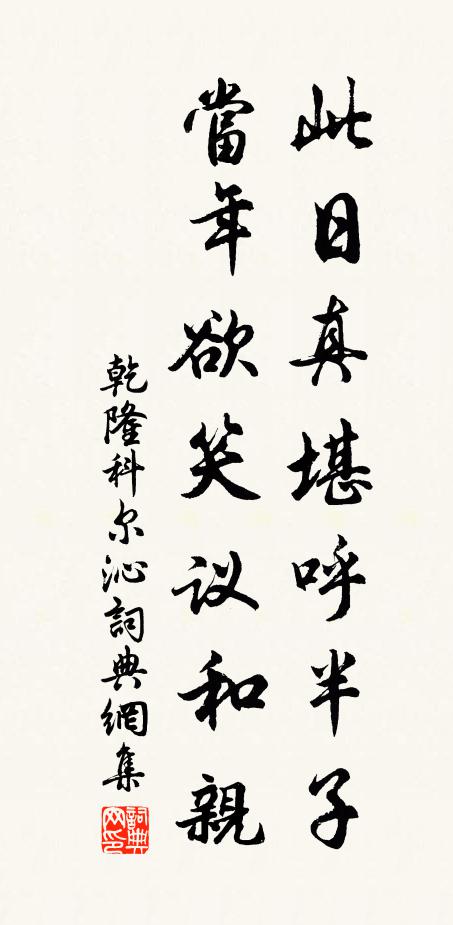 此日真堪呼半子
當年欲笑议和親
乾隆科尔沁詞典網集
詞典网印